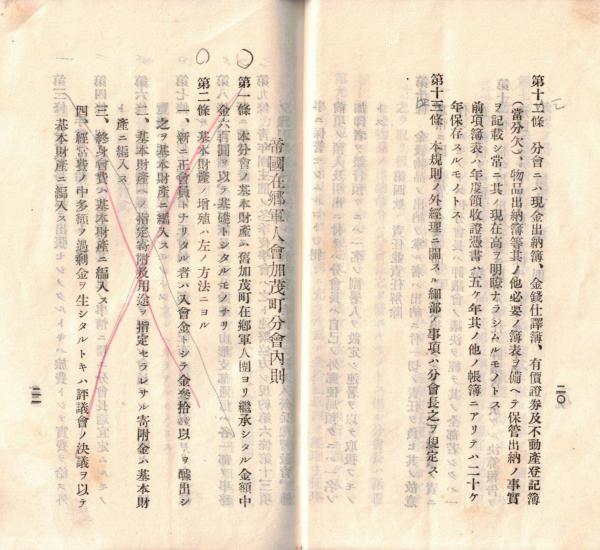 第十二條　分會ニハ現金出納簿、金錢仕譯簿、有價證券及不動産登記簿
(當分欠)、物品出納簿等其ノ他必要ノ簿表ヲ備ヘテ保管出納ノ事實
ヲ記載シ常ニ其ノ現在高ヲ明瞭ナラシムルモノトス
前項簿表ハ年度領收證憑書ハ五ケ年其ノ他ノ帳簿ニアリテハ二十ケ
年保存スルモノトス
第十三條　本規則ノ外經理ニ關スル細部ノ事項ハ分會長之ヲ規定ス
二〇
帝國在鄕軍人會加茂町分會內則
第一條　本分會ノ基本財産ハ舊加茂町在鄕軍人團ヨリ繼承シタル金額中
金六百圓ヲ以テ基礎トシタルモノナリ
第二條　基本財産ノ增殖ハ左ノ方法ニヨル
一、新ニ正會員トナリタル者ハ入會金トシテ金參拾錢以上ヲ醵出シ
之ヲ基本財産ニ編入ス
二、基本財産ヘノ指定寄附及用途ヲ指定セラレサル寄附金ハ基本財
産ニ編入ス
三、終身會費ハ基本財産ニ編入ス
四、經常費ノ中多額ノ過剩金ヲ生シタルトキハ評議會ノ決議ヲ以テ
基本財産ニ編入ス
二一